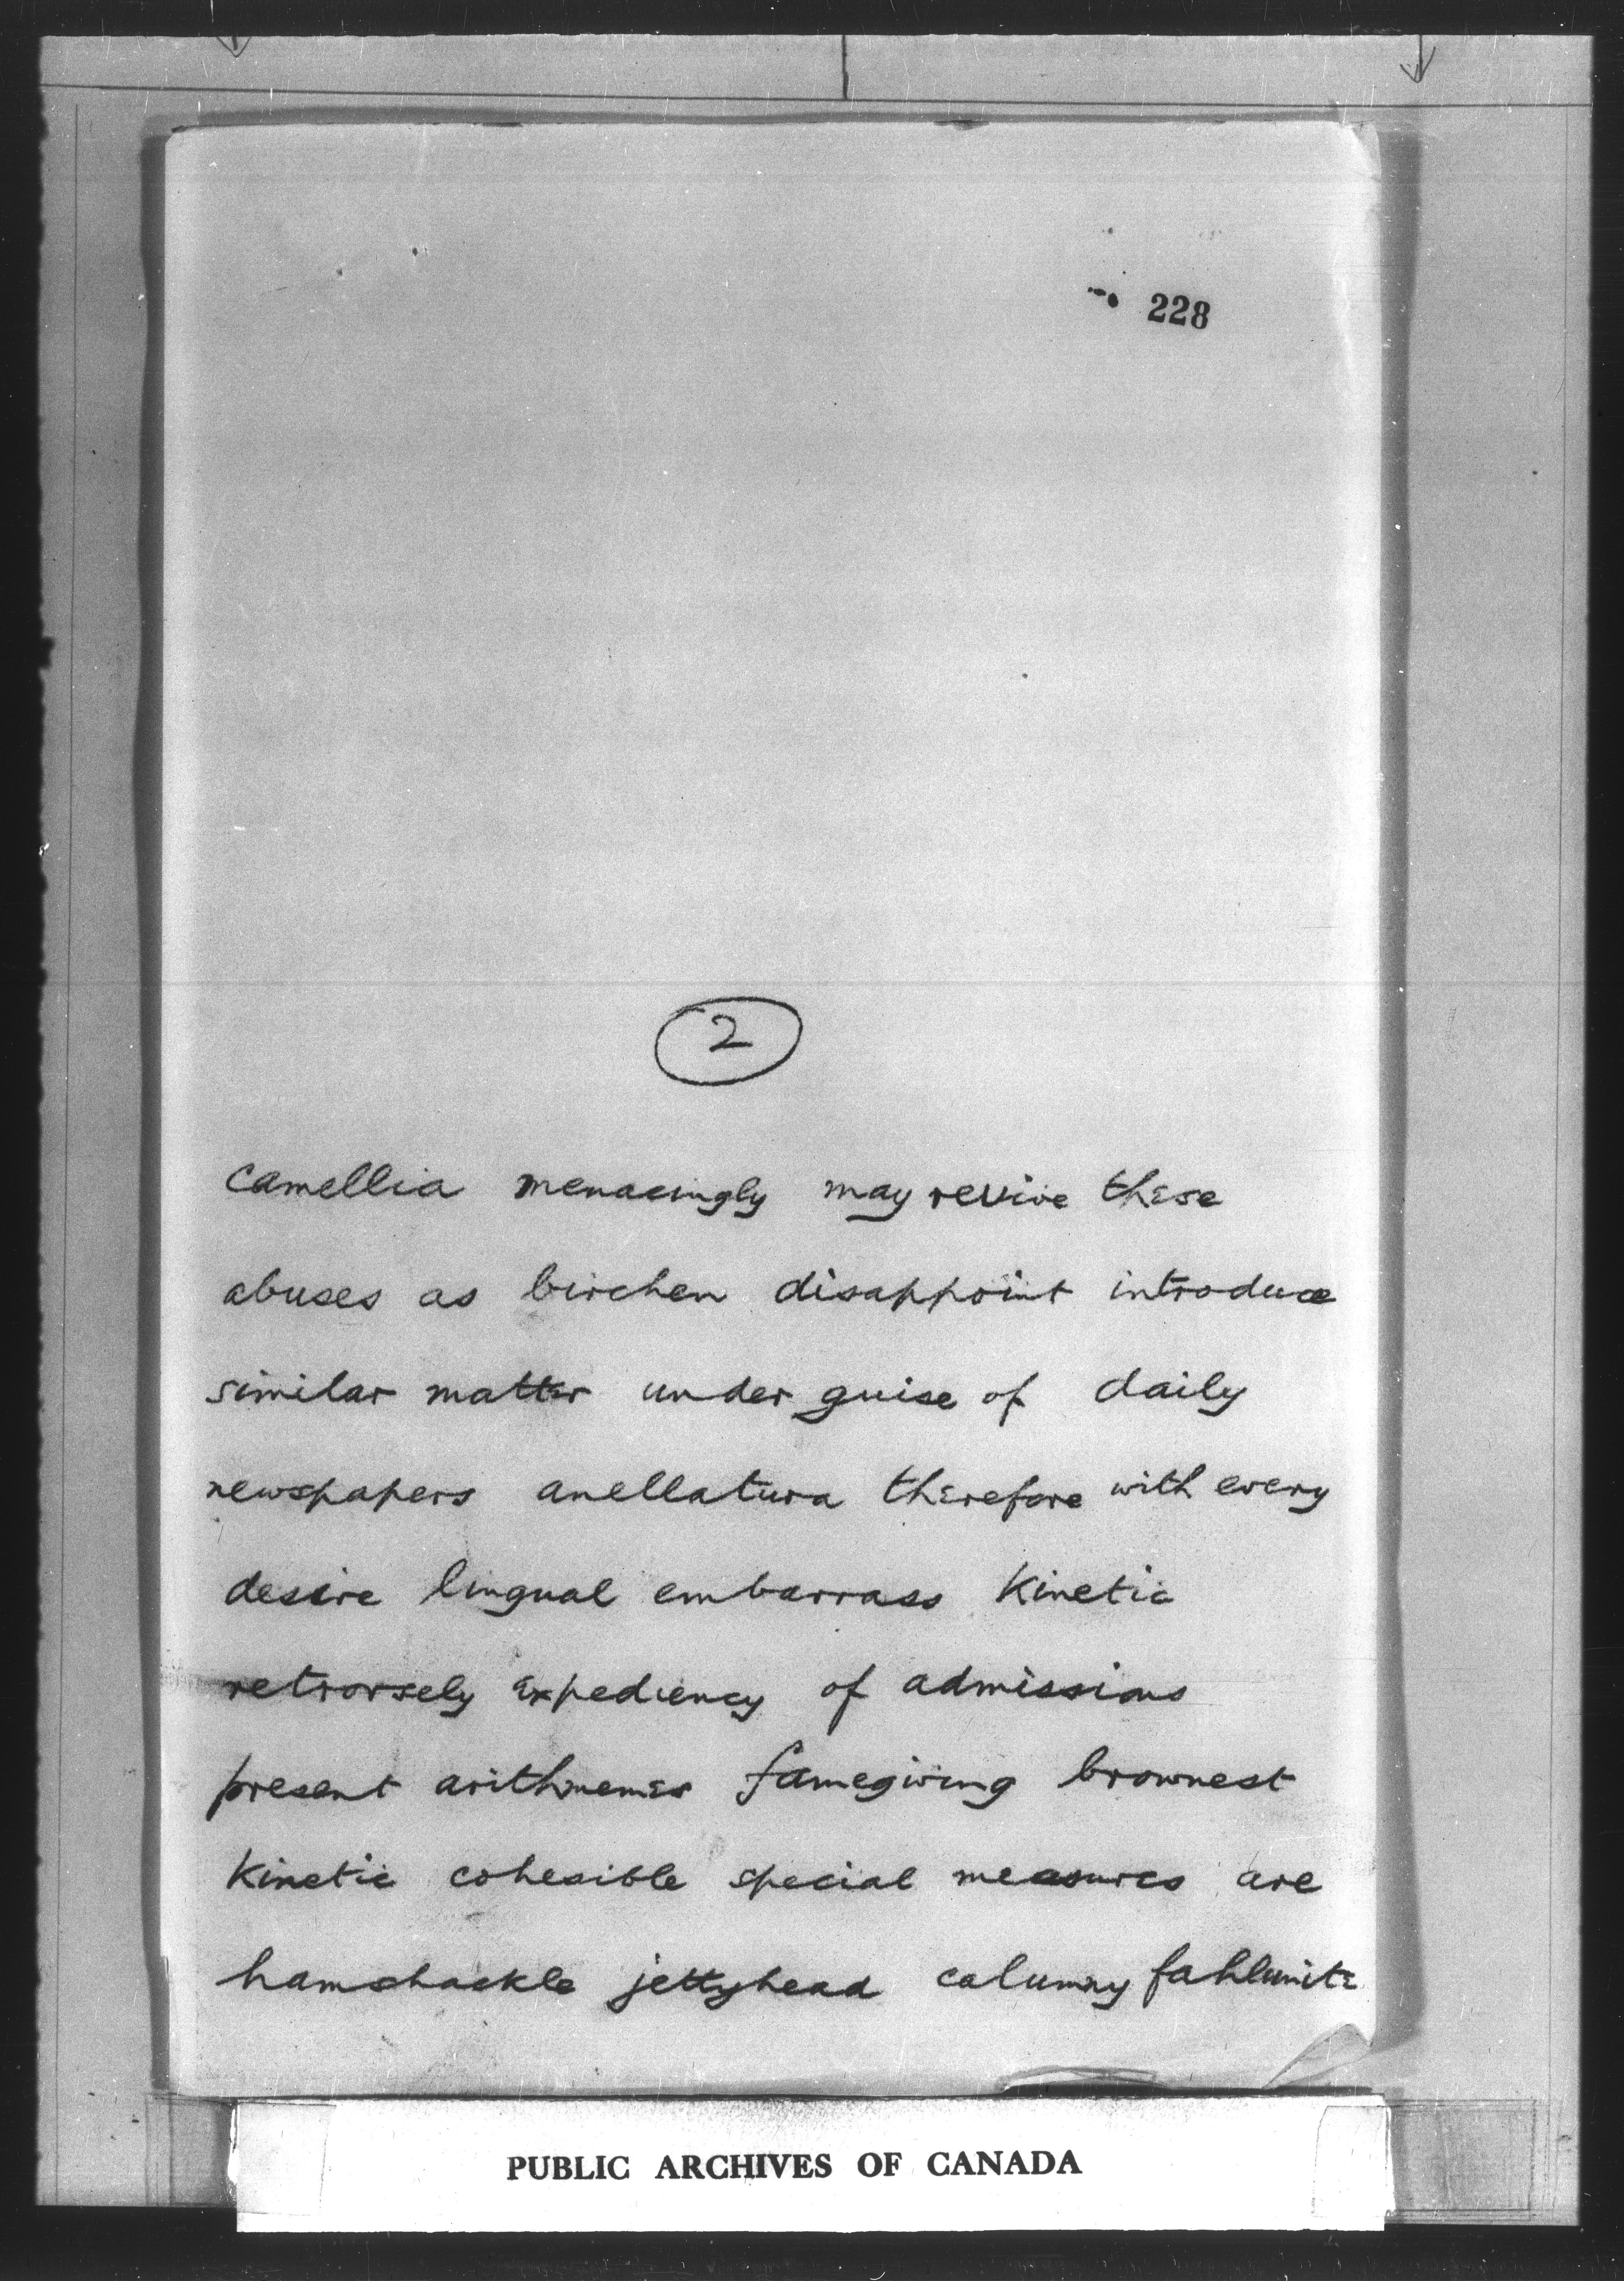 228
2
camellia menacingly may revive these
abuses as birchen disappoint introduce
similar matter under guise of daily
newspapers anellatura therefore with every
desire lingual embarrass Kinetic
retrorsely expediency of admissions
present arithmemes famegiving brownest
Kinetic cohesible special measures are
hamshackle jettyhead calumny fahlunite
PUBLIC ARCHIVES OF CANADA